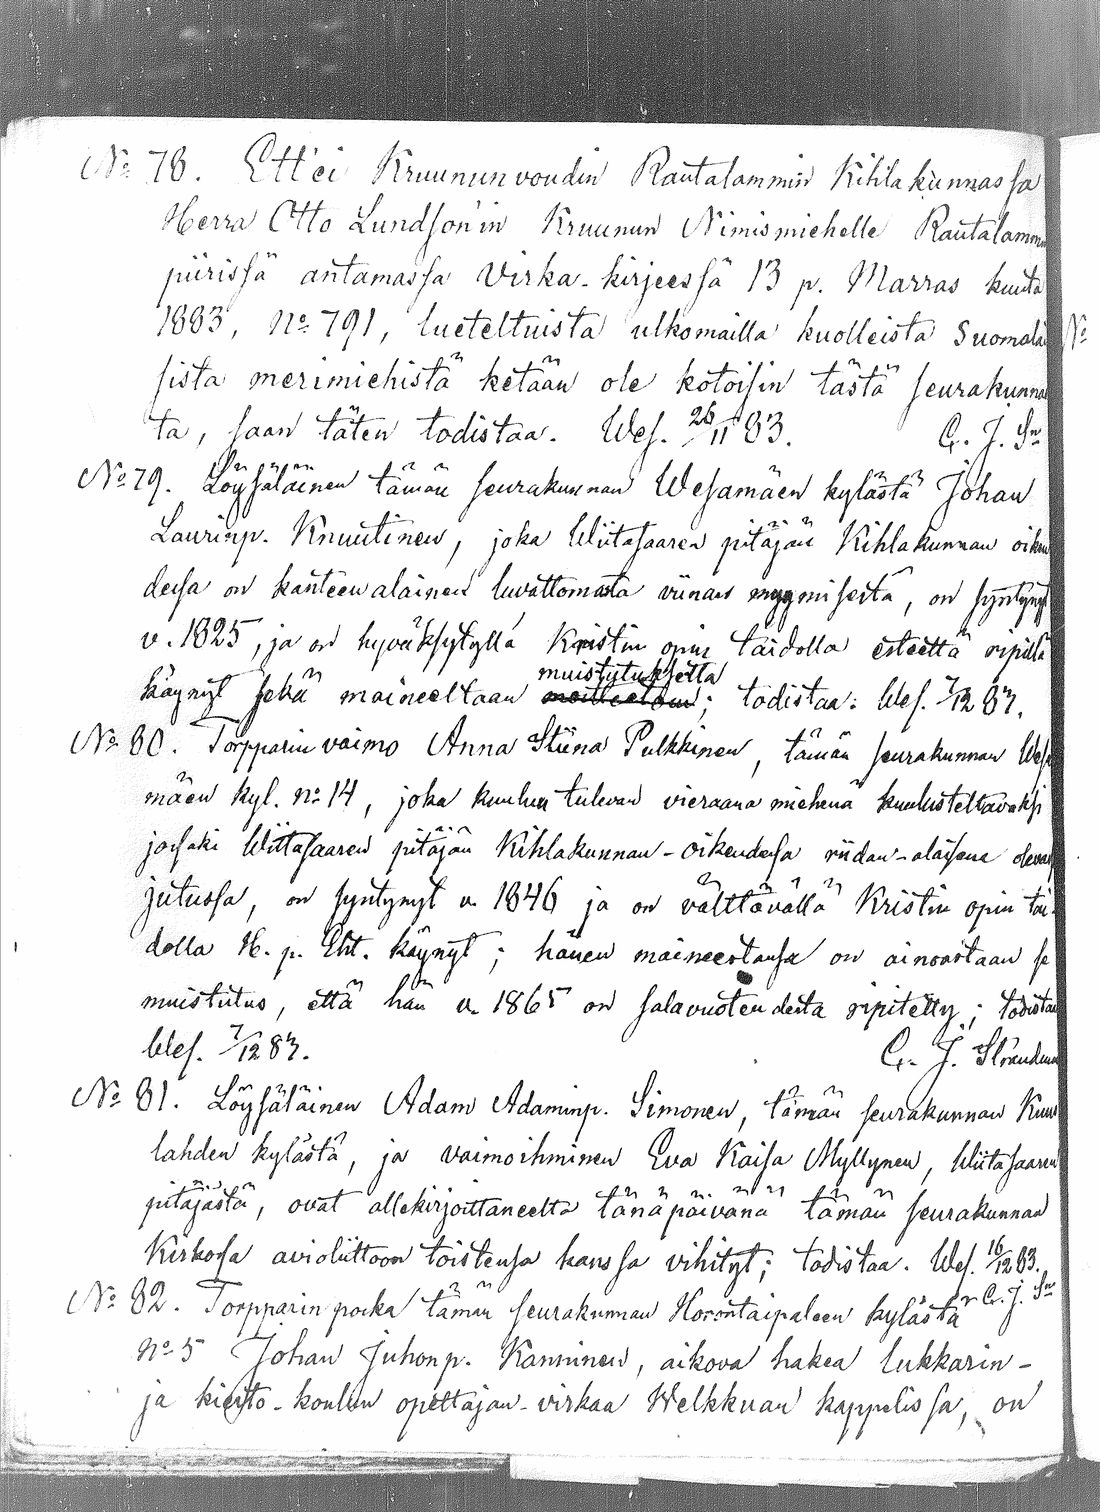 No 78. Ett'ei Kruununvoudin Rautalammin Kihlakunnassa
Herra Otto Lundson'in Kruunun Nimismiehelle Rautalammin
piirissä antamassa Virka-kirjeessä 13 p. Marras kuuta
1883, No 791, lueteltuista ulkomailla kuolleista Suomala
sista merimiehistä ketään ole kotoisin tästä seurakunna
ta, saan täten todistaa. Wes. 26/11 83. C. J. Sn
No 79. Löysäläinen tämän seurakunnan Wesamäen kylästä Johan
Laurinp. Knuutinen, joka Wiitasaaren pitäjän Kihlakunnan oikeu
dessa on kanteen alainen luvattomasta viinan myymisestä, on syntynyt
v. 1825, ja on hyväksytyllä Kristin opin taidolla esteettä ripillä
muistutuksetta
käynyt sekä maineeltaan ; todistaa: Wes. 7/12 83.
No 80. Torpparin vaimo Anna Stiina Pulkkinen, tämän seurakunnan Wesa
mäen kyl. No 14, joka kuuluu tulevan vieraana miehenä kuulusteltavaksi
jossaki Wiitasaaren pitäjän Kihlakunnan-oikeudessa riidan-alaisena olevassa
jutussa, on syntynyt v. 1846 ja on välttävällä Kristin opin tai-
dolla H. p. Eht. käynyt; hänen maineestansa on ainoastaan se
muistutus, että hän v. 1865 on salavuoteudesta ripitetty; todistaa
Wes. 7/12 83. C. J. Strandman
No 81. Löysäläinen Adam Adaminp. Simonen, tämän seurakunnan Kuus
lahden kylästä, ja vaimoihminen Eva Kaisa Myllynen, Wiitasaaren
pitäjästä, ovat allekirjoittaneelta tänäpäivänä tämän seurakunnan
Kirkossa avioliittoon toistensa kanssa vihityt; todistaa. Wes. 16/12 83.
C. J. Sn
No 82. Torpparin poika tämän seurakunnan Horontaipaleen kylästä
No 5 Johan Juhonp. Kanninen, aikova hakea lukkarin-
ja kierto-koulun opettajan-virkaa Welkkuan kappelissa, on